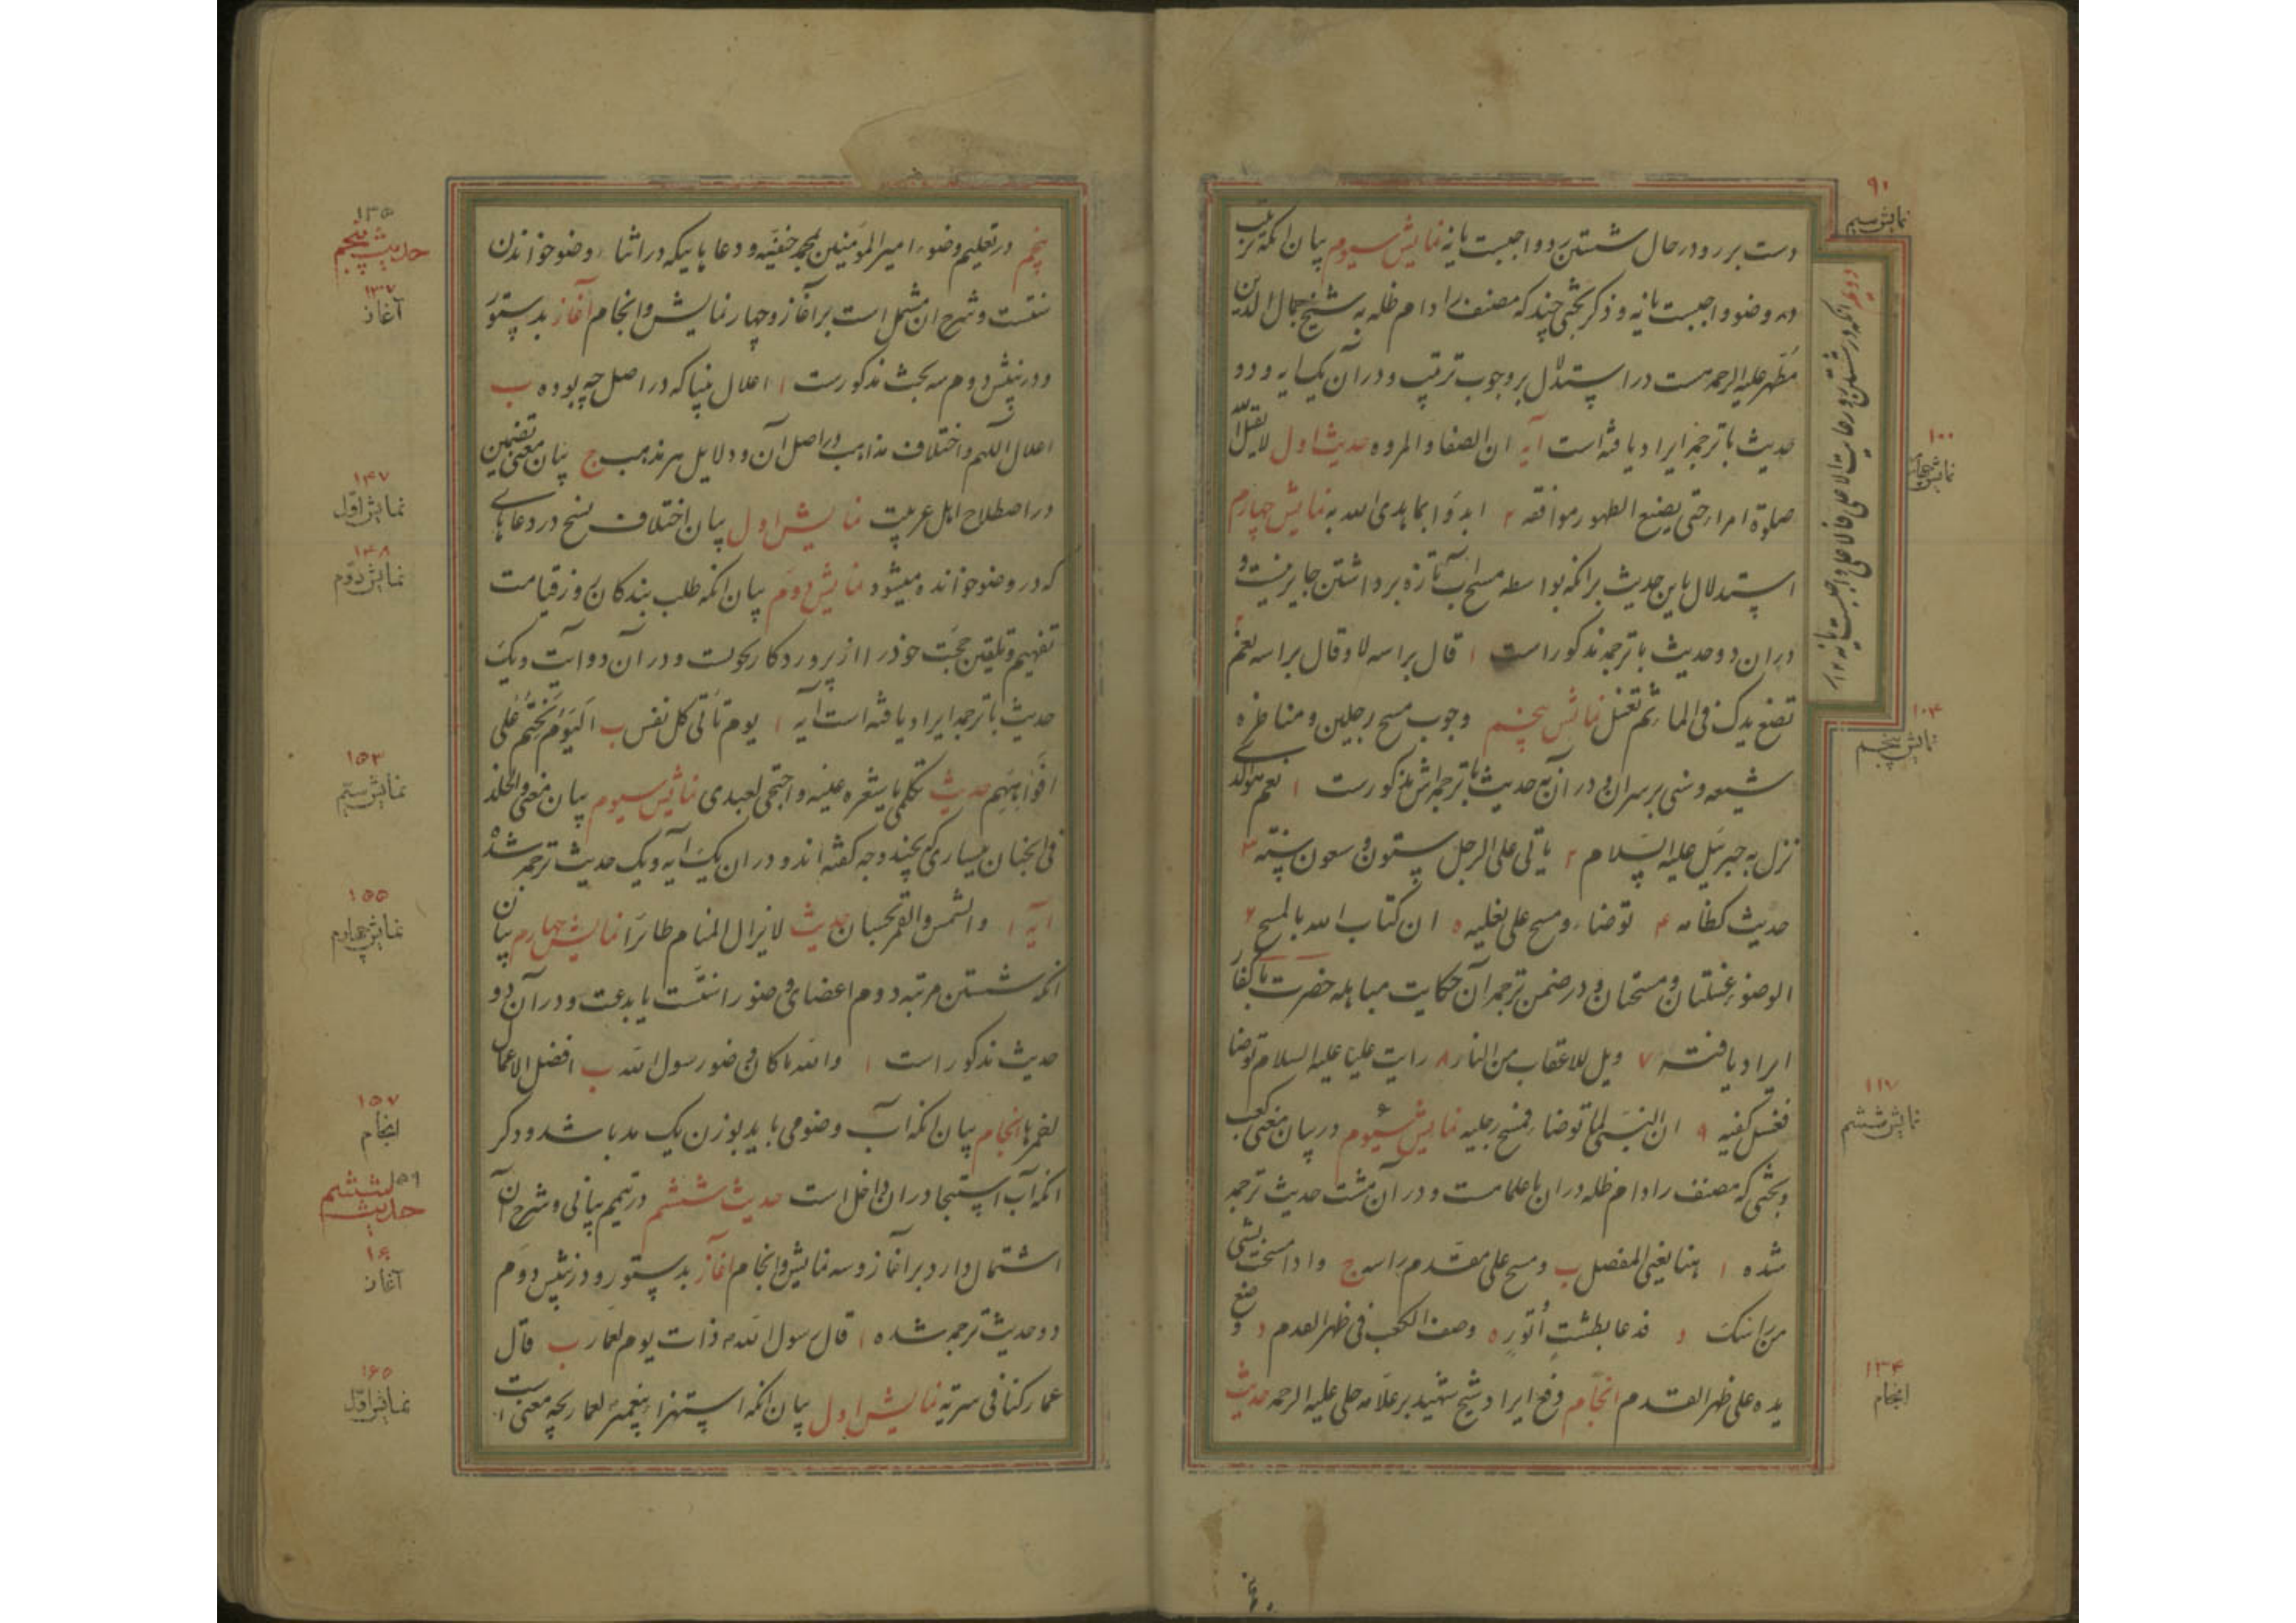 ۹۱
نمایش سیم
دست بر رو در حال شستن رو واجبست یا نه نمایش سیوم بیان انکه ترتیب
در وضو واجبست یا نه و ذکر بحثی چند که مصنف را دام ظله به شیخ جمال الدین
مطهر علیه الرحمه هست در استدلال بر وجوب ترتیب و در آن یک ایه و دو
حدیث با ترجمه ایراد یافته است آیه ان الصفا والمروه حدیث اول لا یقبل الله
صلوة امرا حتی یضع الطهور مواقعه ۲ ابدوا بما بدی الله به نمایش چهارم
استدلال باین حدیث بر انکه بواسطه مسح اب تازه برداشتن جایز نیست و
دران دو حدیث با ترجمه مذکور است ۱ قال براسه لا و قال براسه نعم ۲
تضع یدک فی الماء ثم تغسل نمایش پنجم وجوب مسح رجلین و مناظره
شیعه و سنی بر سر ان و در آن نه حدیث با ترجمه اش مذکورست ۱ نعم هو الذی
نزل به جبرئیل علیه السلام ۲ یاتی علی الرجل ستون و سبعون سنته ۳
حدیث کظامه ۴ توضاء و مسح علی نعلیه ۵ ان کتاب الله بالمسح ۶
الوضوء غسلتان و مسحتان و در ضمن ترجمه آن حکایت مباهله حضرت با کفار
ایراد یافته ۷ ویل للاعقاب من النار ۸ رایت علیا علیه السلام توضا
فغسل کفیه ۹ ان النبی لما توضاء فمسح رجلیه نمایش شیوم در بیان معنی کعب
و بحثی که مصنف را دام ظله دران با علماست و در آن هشت حدیث ترجمه
شده ۱ هنا یعنی المفصل ب و مسح علی مقدم راسه ج واذا مسحت بشی
من راسک د فدعا بطشت او تور ه وصف الکعب فی ظهر القدم و وضع
یده علی ظهر القدم انجام دفع ایراد شیخ شهید بر علامه حلی علیه الرحمه حدیث
دویم انکه در شستن رو رعایت الاعلی فالاعلی واجبست یا نه
۱۰۰
نمایش چهارم
۱۰۴
نمایش پنجم
۱۱۷
نمایش ششم
۱۳۴
انجام
پنجم در تعلیم وضوء امیر المؤمنین بمحمد حنفیه و دعا هاییکه در اثناء وضو خواندن
سنتست و شرح ان مشتمل است بر آغاز و چهار نمایش و انجام آغاز بدستور
و در نپش دوم سه بحث مذکورست ۱ اعلال بینا که در اصل چه بوده ب
اعلال اللهم و اختلاف مذاهب در اصل آن و دلایل هر مذهب ج بیان معنی تضمین
در اصطلاح اهل عربیت نمایش اول بیان اختلاف نسخ در دعاهای
که در وضو خوانده میشود نمایش دوم بیان انکه طلب بندکان روز قیامت
تفهیم و تلقین حجت خود را از پروردکار بحولت و در آن دو آیت و یک
حدیث با ترجمه ایراد یافته است آیه ۱ یوم تاتی کل نفس ب الیوم نختم علی
افواههم حدیث تکلمی یا شعره عینیه و احتجی لعبدی نمایش سیوم بیان معنی و الخلد
فی الجنان بیساری که بچند وجه کفته اند و در ان یک ایه و یک حدیث ترجمه شده
ایه ۱ والشمس والقمر بحسبان حدیث لا یزال المنام طائرا نمایش چهارم بیان
انکه شستن مرتبه دوم اعضای وضو را سنتست یا بدعت و در آن دو
حدیث مذکور است ۱ والله ما کان وضور رسول الله ب افضل الاعمال
احمزها انجام بیان انکه آب وضو می باید بوزن یک مد باشد و ذکر
انکه آب استنجا در ان داخل است حدیث ششم در تیمم بیانی و شرح آن
اشتمال دارد بر آغاز و سه نمایش و انجام آغاز بدستور و در نپش دوم
دو حدیث ترجمه شده ۱ قال رسول الله ذات یوم لعمار ب قال
عمار کنا فی سریة نمایش اول بیان انکه استهزاء پیغمبر لعمار بچه معنی است
۱۳۵
حدیث پنجم
۱۳۷
آغاز
۱۴۷
نمایش اول
۱۴۸
نمایش دوم
۱۵۳
نمایش سیم
۱۵۵
نمایش چهارم
۱۵۷
انجام
۵۹
حدیث ششم
۱۶
آغاز
۱۶۵
نمایش اول